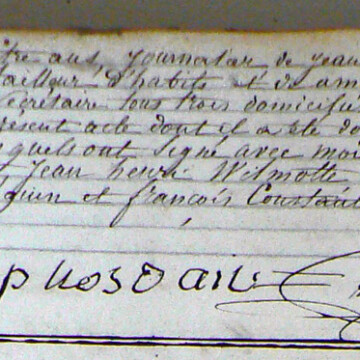 tre ans, Journalier de Jean
tailleur d'habits et de
Secrétaire tous trois domiciliés
présent acte dont il a été d
quels ont signé avec moi
Jean henri Wilmotte
quien et françois Constant